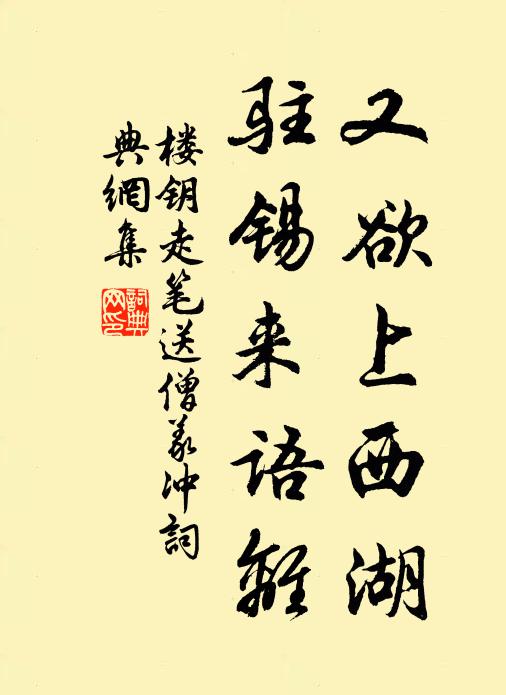 又欲上西湖
驻锡来语離
楼钥走笔送僧义冲詞
典網集
詞典
网印